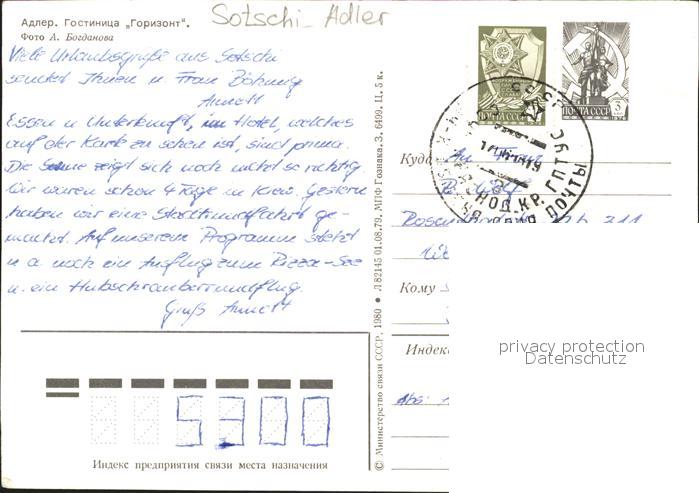 Sotschi-Adler
Адлер. Гостиница „Горизонт“.
Фото А. Богданова
Viele Urlaubsgrüße aus Sotschi
sendet Ihnen u Frau Böhmig
Annett
Essen u Unterkunft, im Hotel, welches
auf der Karte zu sehen ist, sind prima.
Die Sonne zeigt sich noch nicht so richtig
Wir waren schon 4 Tage in Kiew. Gestern
haben wir eine Stadtrundfahrt ge-
macht. Auf unserem Programm steht
u a noch ein Ausflug zum Rizza-See
u. ein Hubschrauberrundflug.
Gruß Annett
5300
Индекс предприятия связи места назначения
© Министерство связи СССР, 1980 • Л 82145 01.08.79. МПФ Гознака. З. 6499. Ц. 5 к.
ПОЧТА СССР
ПОЧТА СССР 3
СССР
КР. ГПТУС
ПОЧТЫ
Куда
Кому
Индекс
Abs.
privacy protection
Datenschutz